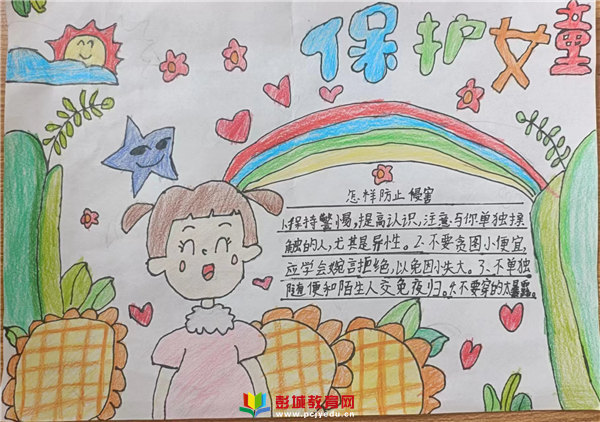 保护女童
怎样防止侵害
1.保持警惕,提高认识,注意与你单独接
触的人,尤其是异性。2.不要贪图小便宜
应学会婉言拒绝,以免因小失大。3、不单独
随便和陌生人交免夜归。4.不要穿的太暴露。
彭城教育网
www.pcjyedu.cn